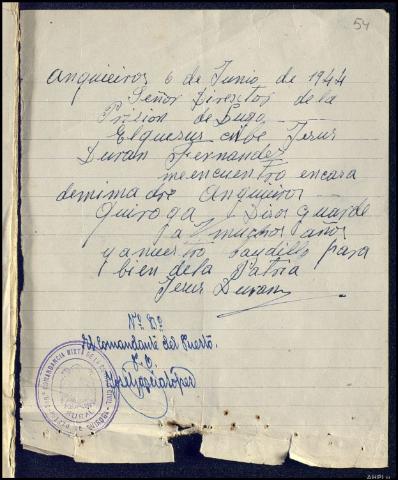 54
Anquieiros 6 de Junio de 1944
Señor Director de la
Prision de Lugo
El que suscribe Jesus
Duran Fernandez
me encuentro en casa
de mi madre Anquieiros
Quiroga Dios guarde
a V muchos años
y a nuestro Caudillo para
bien de la Patria
Jesus Duran
Vº Bº
El Comandante del Puesto.
COMANDANCIA MIXTA DE LA
RURAL
AHPL